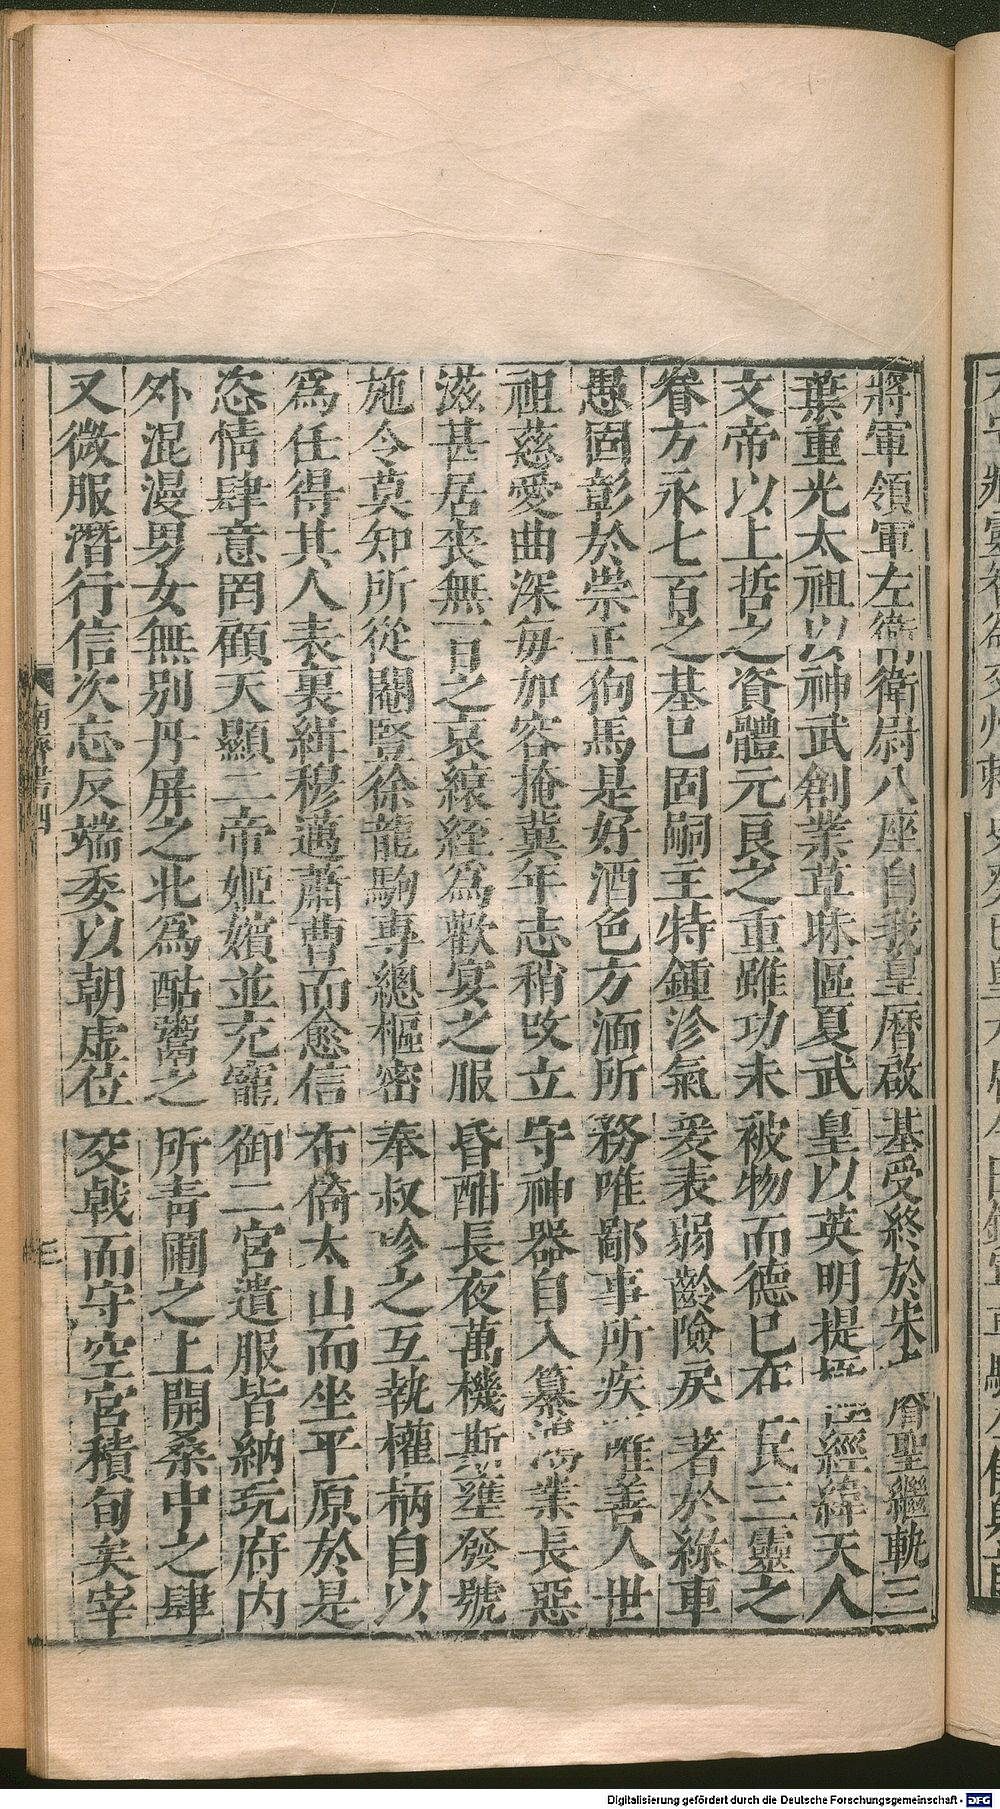 將軍領軍左衛衛尉八座自我皇曆啟基受終於宋 聖繼軌三
葉重光太祖以神武創業草昧區夏武皇以英明提 經緯天人
文帝以上哲之資體元良之重雖功未被物而德已在民三靈之
眷方永七百之基已固嗣主特鍾沴氣爰表弱齡險戾著於綠車
愚固彰於崇正狗馬是好酒色方湎所務唯鄙事所疾唯善人世
祖慈愛曲深每加容掩冀年志稍改立守神器自入纂 業長惡
滋甚居喪無一日之哀縗絰爲歡宴之服昏酣長夜萬機斯壅發號
施令莫知所從閹豎徐龍駒專總樞密奉叔珍之互執權柄自以
爲任得其人表裏緝穆邁蕭曹而愈信布倚太山而坐平原於是
恣情肆意罔顧天顯二帝姬嬪並充寵御二宮遺服皆納玩府內
外混漫男女無別丹屏之北爲酤鬻之所青蒲之上開桑中之肆
又微服潛行信次忘反端委以朝虛位交戟而守空宮積旬矣宰
南齊書四
三
Digitalisierung gefördert durch die Deutsche Forschungsgemeinschaft - DFG